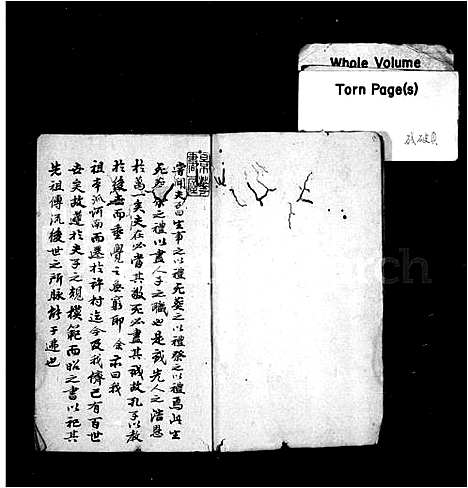 Whole Volume
Torn Page(s)
残破頁
嘗聞夫子曰生事之以禮死葬之以禮祭之以禮焉此生
死葬祭之禮以盡人子之職也是我先人之浩恩
於萬一矣夫在必當其敬死必盡其誠故孔子以教
於後而垂覺之無窮耶余示曰我
祖本派河南而遷於許村迄今及我儕已有百世
矣故遵於夫子之規模範而昭之書以記其
先祖傳流後世之所脉于遞也